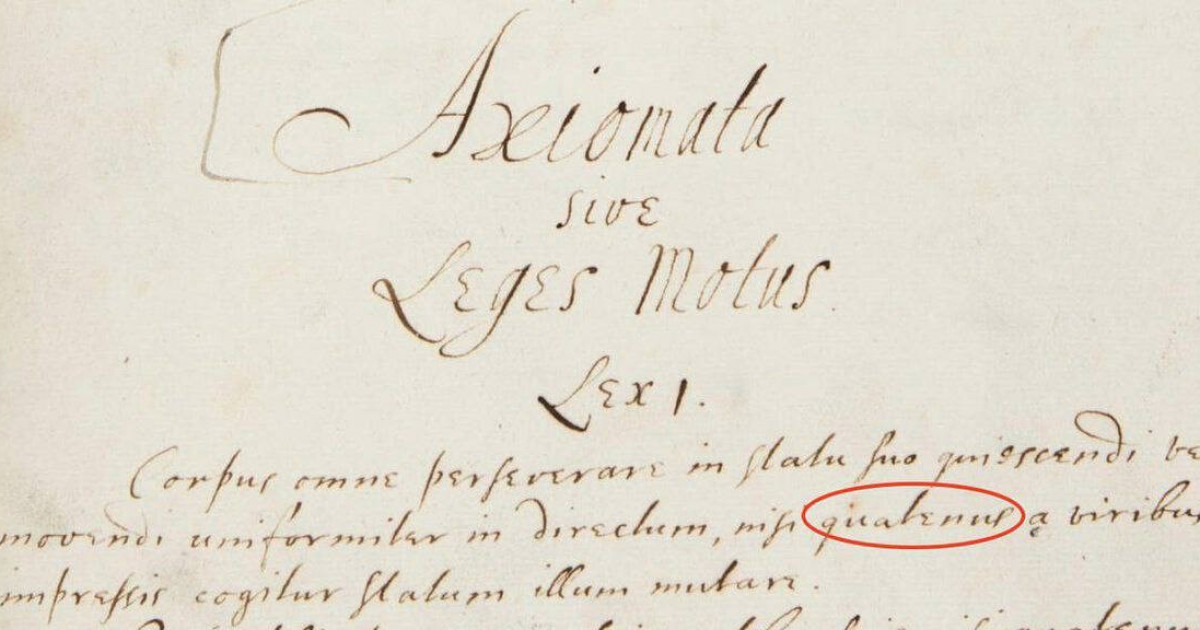 Axiomata
sive
Leges Motus
Lex 1.
Corpus omne perseverare in statu suo quiescendi ve
movendi uniformiter in directum, nisi quatenus a viribus
impressis cogitur statum illum mutare.